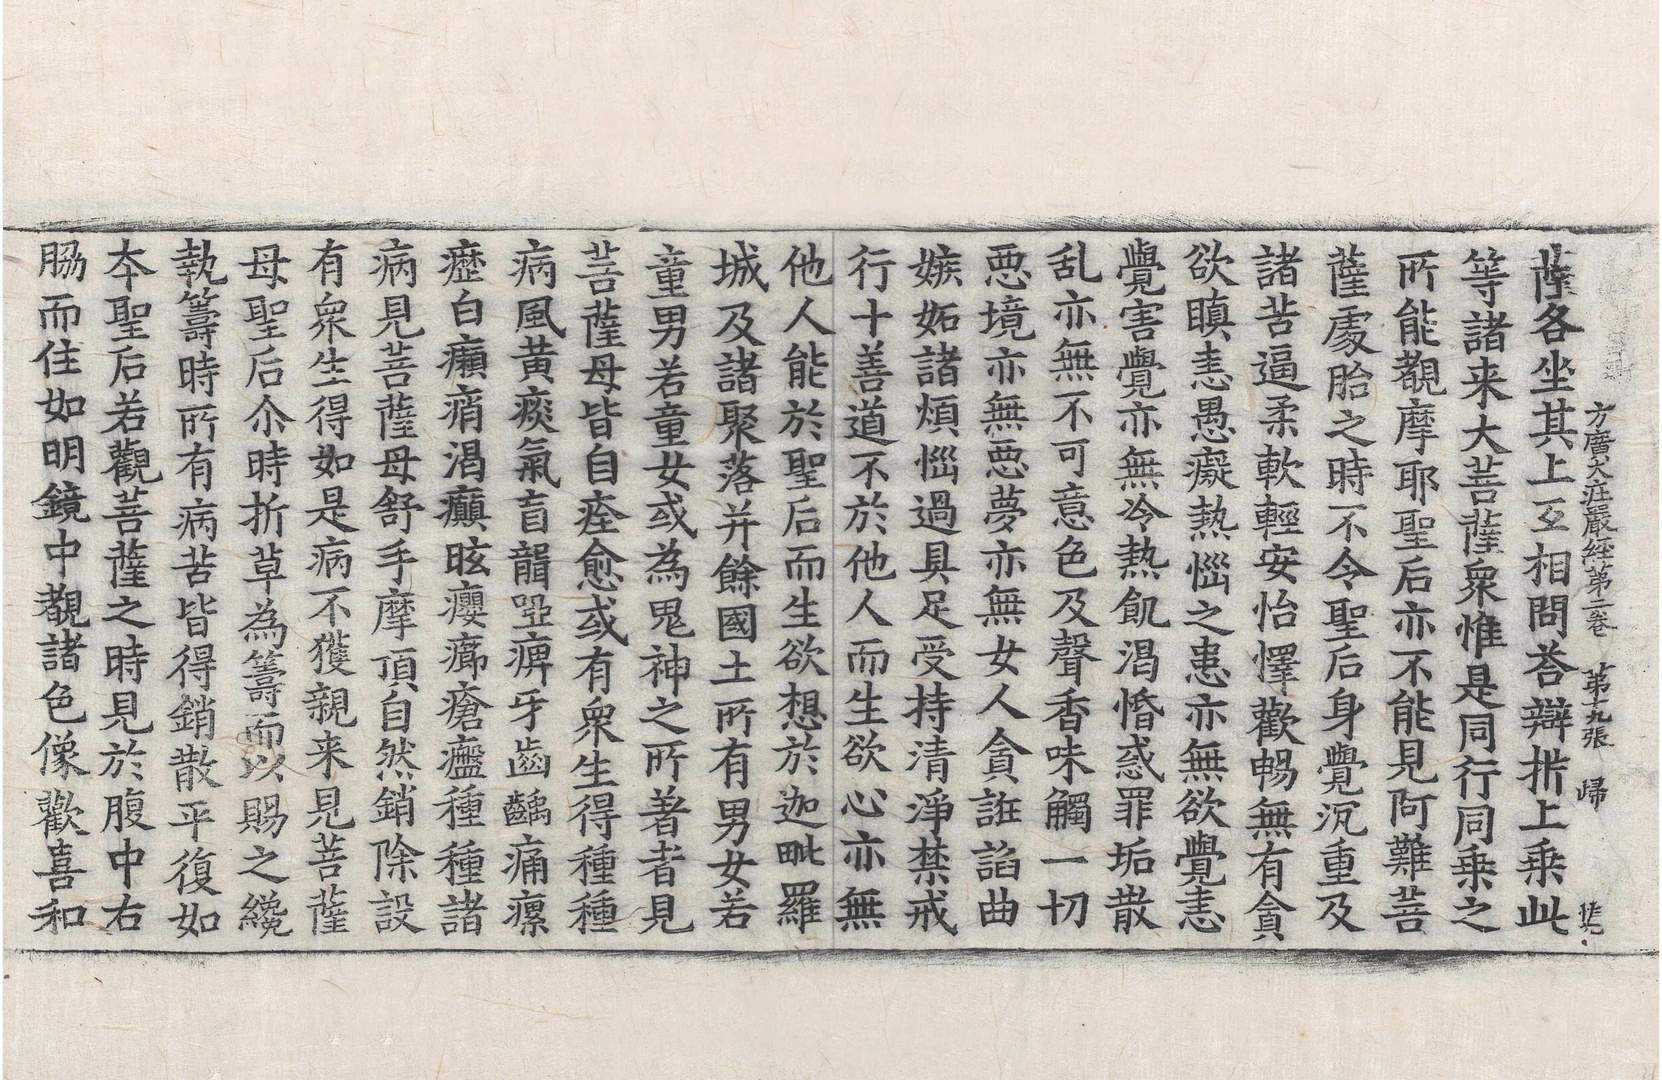 方廣大庄嚴經第二卷　第十九張　歸
薩各坐其上互相問荅辯析上乗此
等諸来大菩薩衆惟是同行同乗之
所能覩摩耶聖后亦不能見阿難菩
薩處胎之時不令聖后身覺沉重及
諸苦逼柔軟輕安怡懌歡暢無有貪
欲瞋恚愚癡熱惱之患亦無欲覺恚
覺害覺亦無冷熱飢渴惛惑罪垢散
乱亦無不可意色及聲香味觸一切
惡境亦無惡夢亦無女人貪誑諂曲
嫉妬諸煩惱過具足受持清淨禁戒
行十善道不於他人而生欲心亦無
他人能於聖后而生欲想於迦毗羅
城及諸聚落并餘國土所有男女若
童男若童女或為鬼神之所著者見
菩薩母皆自痊愈或有衆生得種種
病風黄痰氣盲聾瘂痺牙齒齲痛瘰
癧白癩痟渴癲眩癭㾜瘡㿈種種諸
病見菩薩母舒手摩頂自然銷除設
有衆生得如是病不獲親来見菩薩
母聖后尒時折草為籌而以賜之纔
執籌時所有病苦皆得銷散平復如
本聖后若觀菩薩之時見於腹中右
脇而住如明鏡中覩諸色像歡喜和